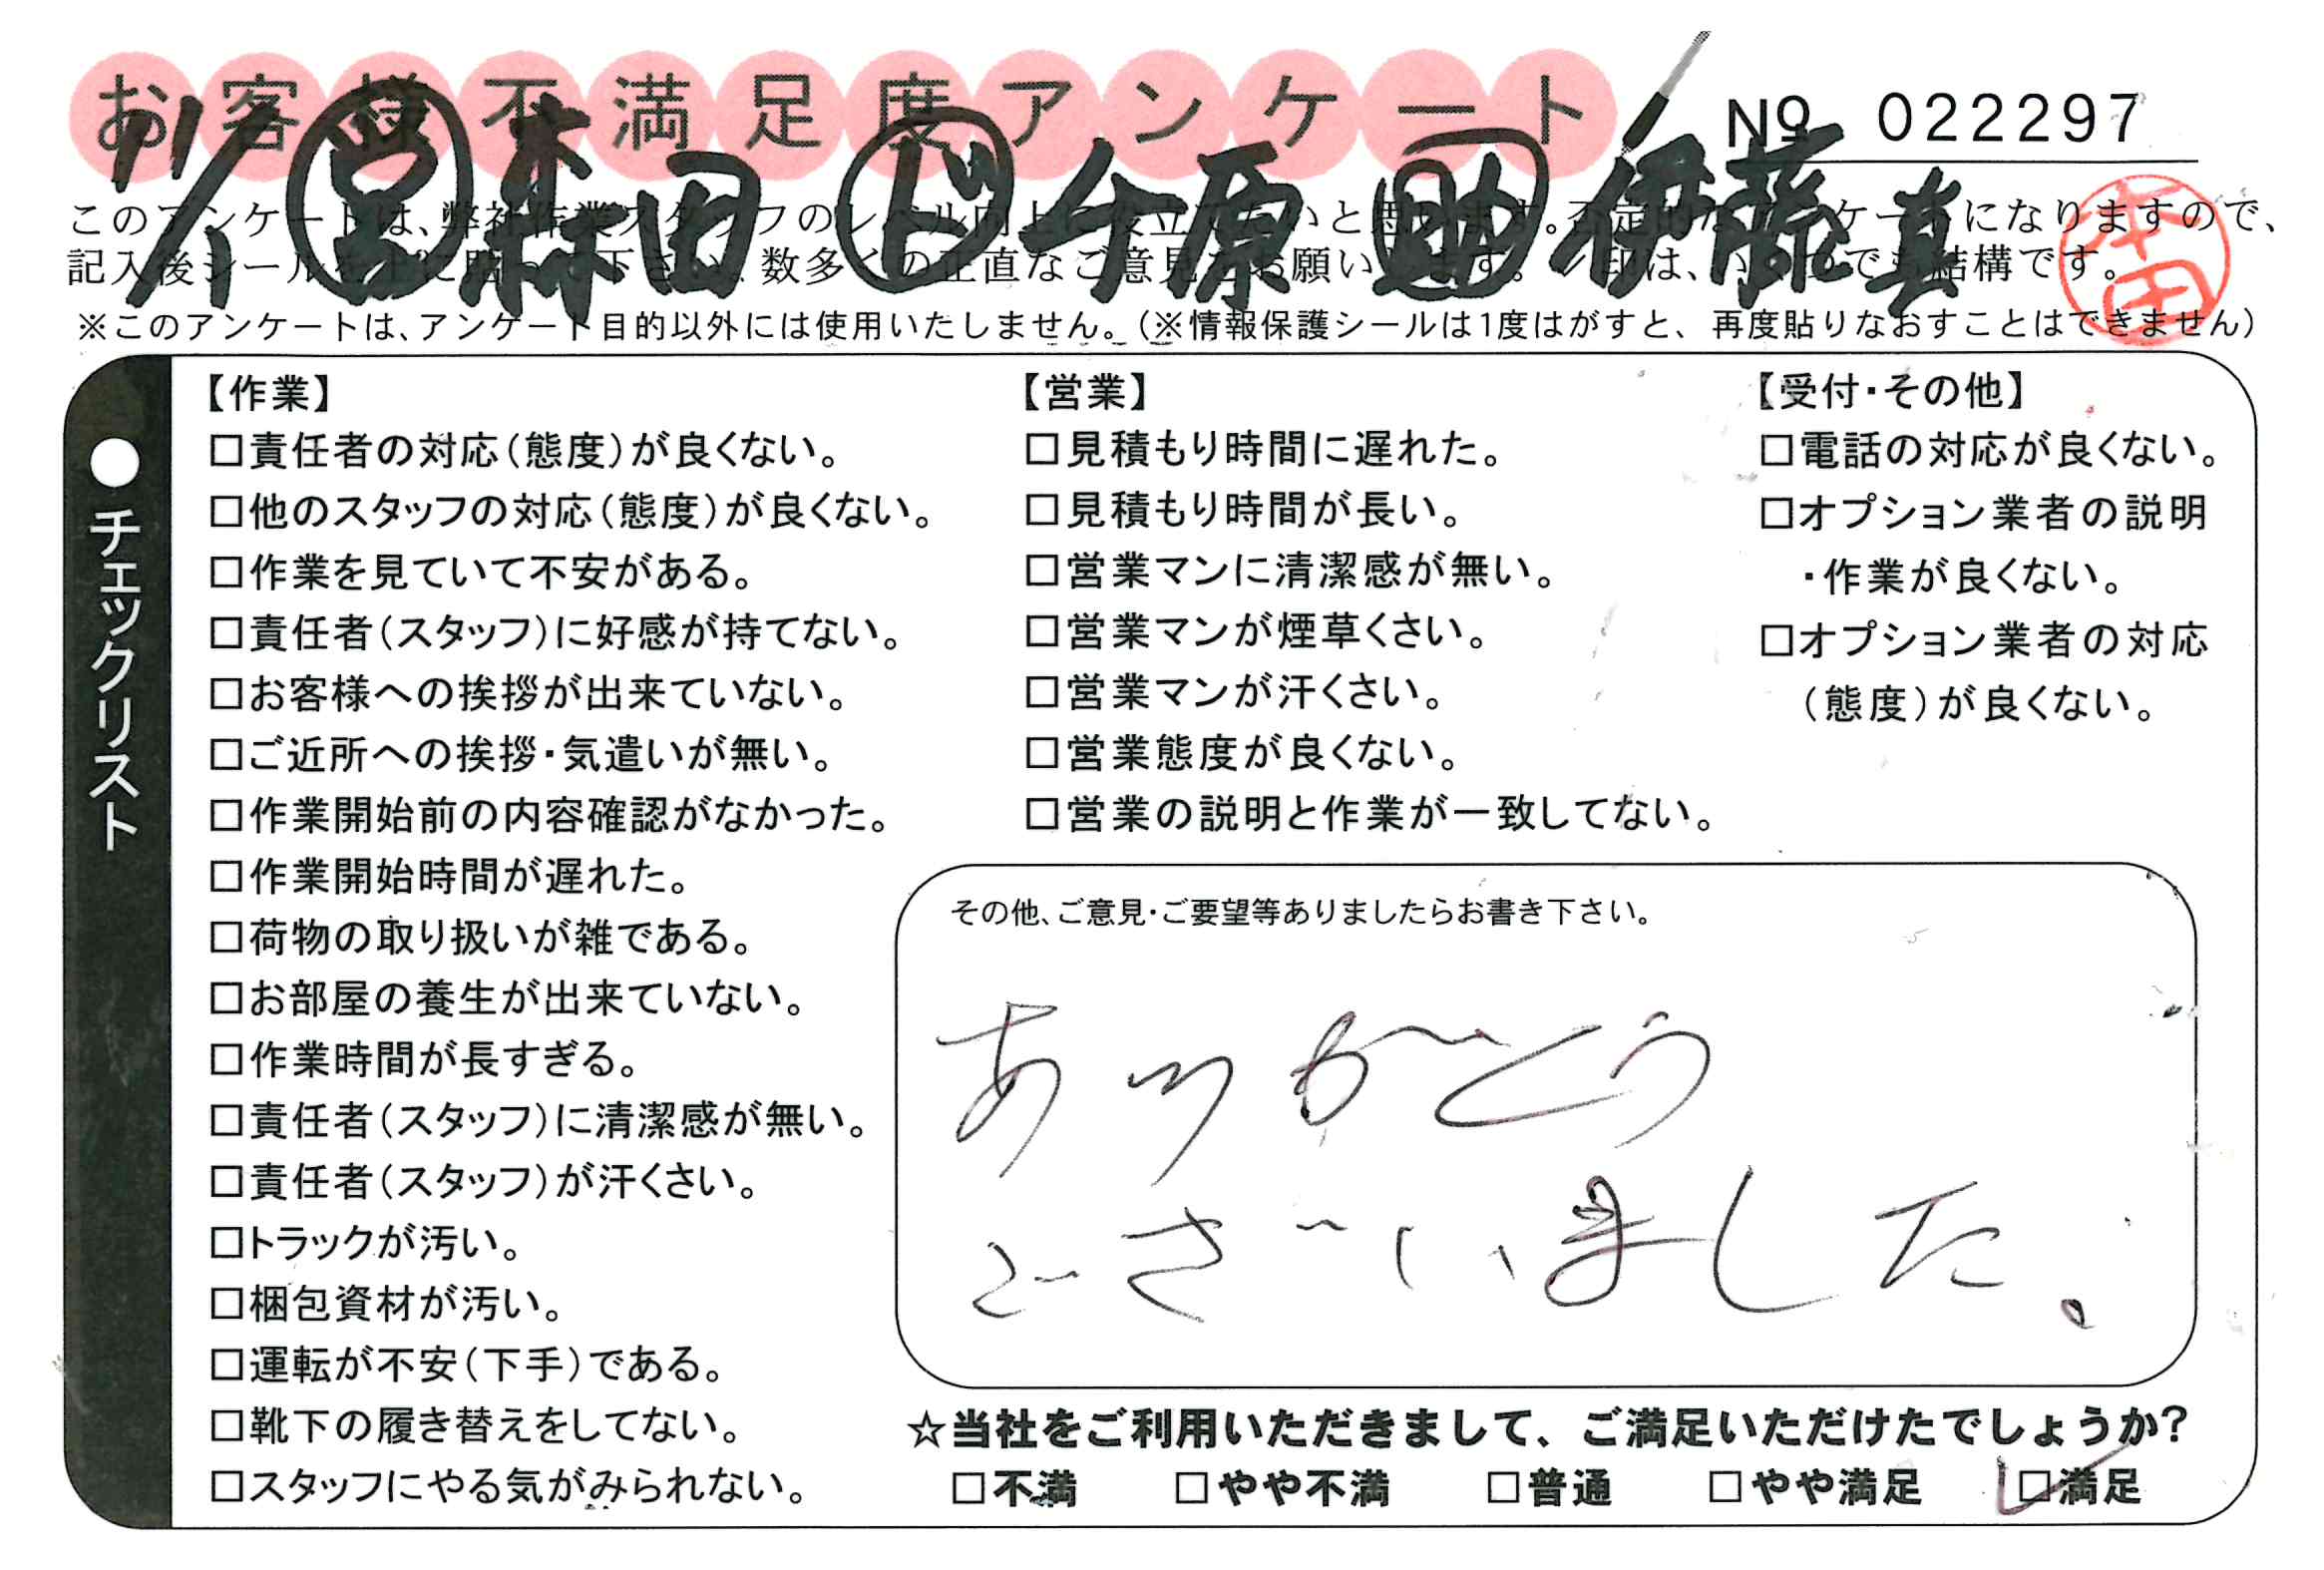 お客様不満足度アンケート
№ 022297
11/1 営 森田 ド 千原 助 伊藤真
本田
このアンケートは、弊社作業スタッフのレベル向上に役立てたいと思います。否定的なアンケートになりますので、
記入後シールを上に貼って下さい。数多くの正直なご意見をお願いします。✓印は、いくつでも結構です。
※このアンケートは、アンケート目的以外には使用いたしません。（※情報保護シールは1度はがすと、再度貼りなおすことはできません）
●チェックリスト
【作業】
□責任者の対応（態度）が良くない。
□他のスタッフの対応（態度）が良くない。
□作業を見ていて不安がある。
□責任者（スタッフ）に好感が持てない。
□お客様への挨拶が出来ていない。
□ご近所への挨拶・気遣いが無い。
□作業開始前の内容確認がなかった。
□作業開始時間が遅れた。
□荷物の取り扱いが雑である。
□お部屋の養生が出来ていない。
□作業時間が長すぎる。
□責任者（スタッフ）に清潔感が無い。
□責任者（スタッフ）が汗くさい。
□トラックが汚い。
□梱包資材が汚い。
□運転が不安（下手）である。
□靴下の履き替えをしてない。
□スタッフにやる気がみられない。
【営業】
□見積もり時間に遅れた。
□見積もり時間が長い。
□営業マンに清潔感が無い。
□営業マンが煙草くさい。
□営業マンが汗くさい。
□営業態度が良くない。
□営業の説明と作業が一致してない。
【受付・その他】
□電話の対応が良くない。
□オプション業者の説明
・作業が良くない。
□オプション業者の対応
（態度）が良くない。
その他、ご意見・ご要望等ありましたらお書き下さい。
ありがとう
ございました。
☆当社をご利用いただきまして、ご満足いただけたでしょうか?
□不満 □やや不満 □普通 □やや満足 ☑満足